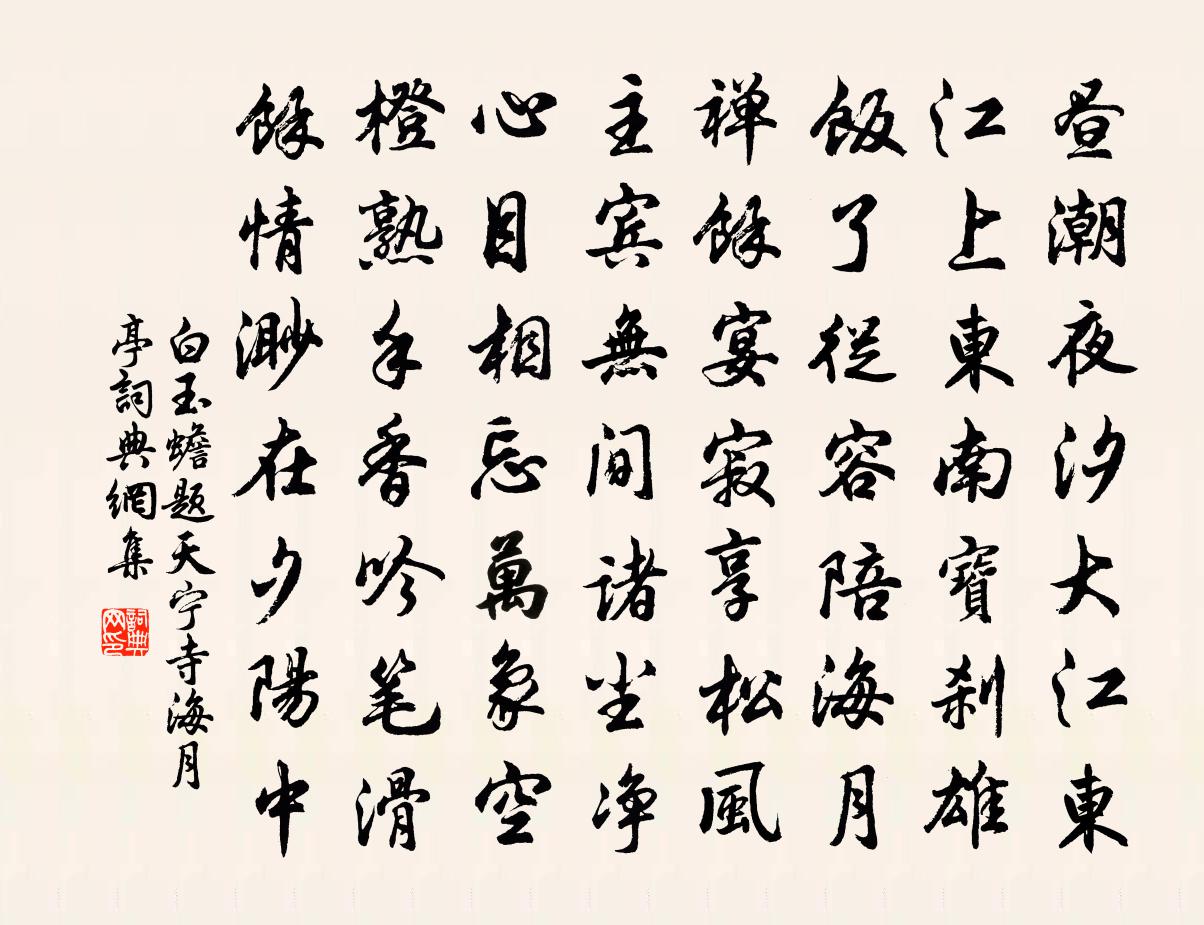 昼潮夜汐大江東
江上東南寶刹雄
飯了從容陪海月
禅餘宴寂享松風
主宾無间諸尘净
心目相忘萬象空
橙熟手香吟笔滑
餘情渺在夕陽中
白玉蟾题天宁寺海月
亭詞典網集
詞典网印